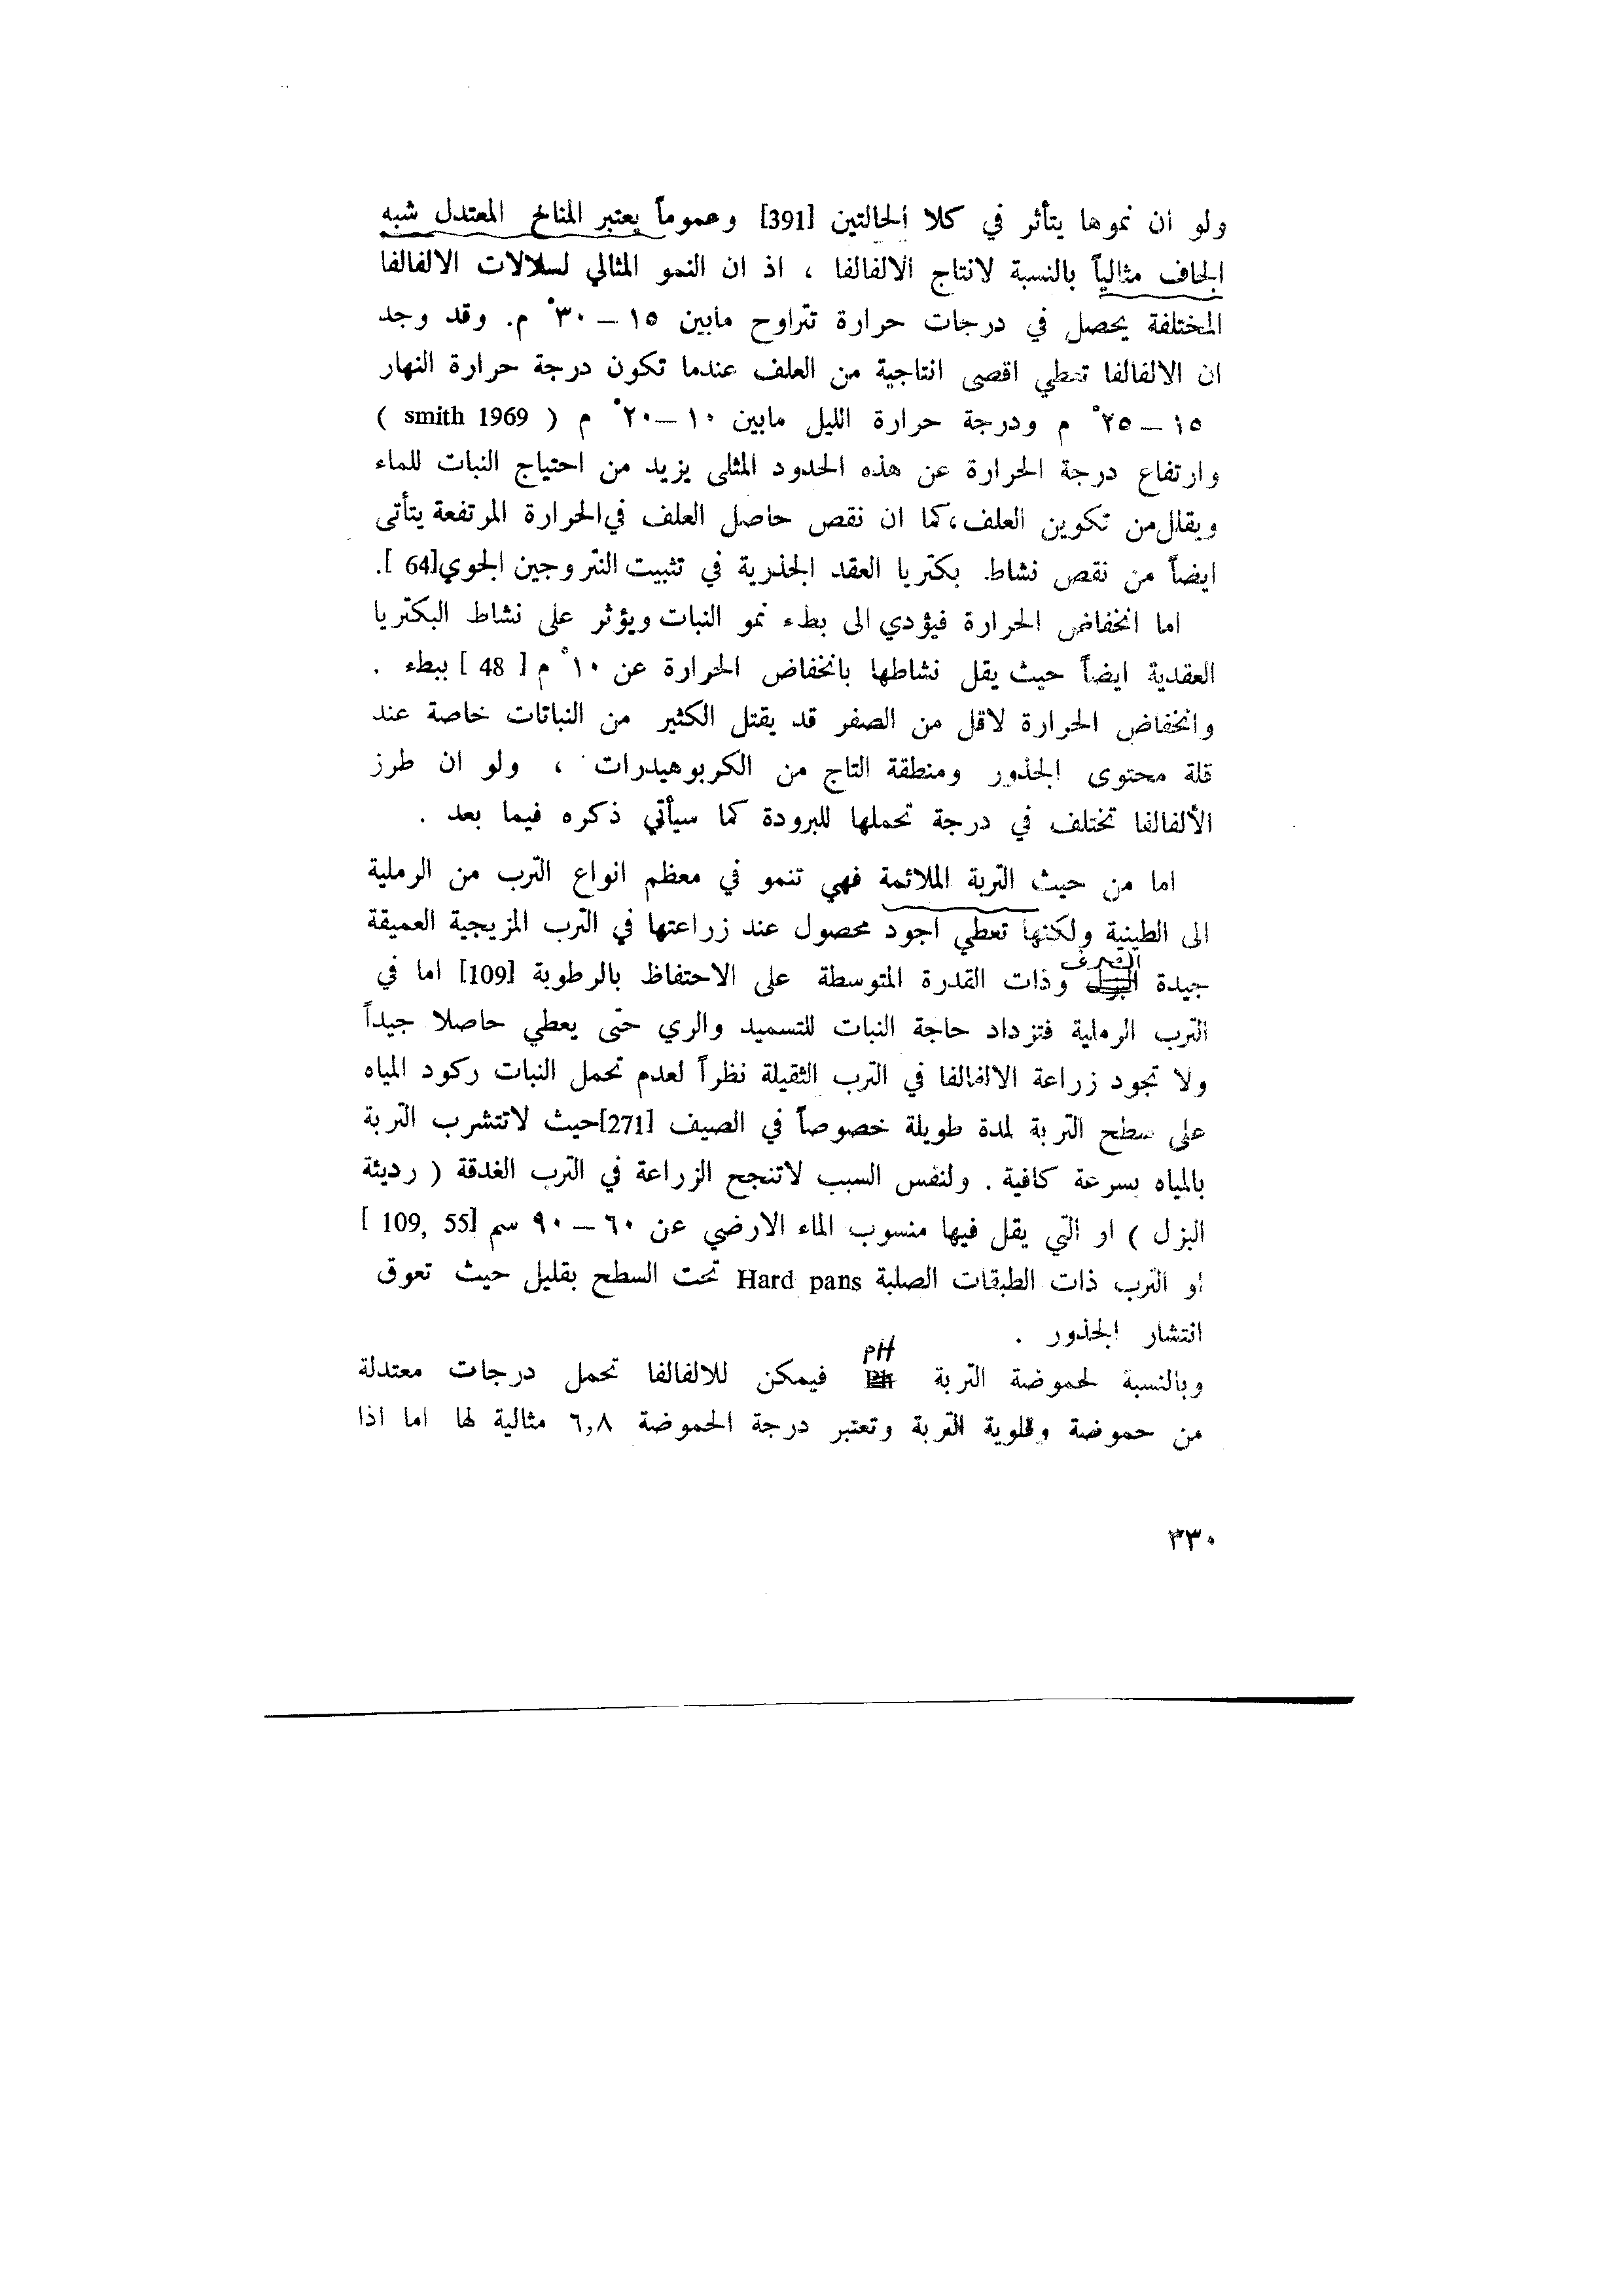 ولو ان نموها يتأثر في كلا الحالتين [391] وعموماً يعتبر المناخ المعتدل شبه
الجاف مثالياً بالنسبة لانتاج الالفالفا ، اذ ان النمو المثالي لسلالات الالفالفا
المختلفة يحصل في درجات حرارة تتراوح مابين ١٥ – ٣٠° م. وقد وجد
ان الالفالفا تعطي اقصى انتاجية من العلف عندما تكون درجة حرارة النهار
١٥ – ٢٥° م ودرجة حرارة الليل مابين ١٠ –٢٠° م ( smith 1969 )
وارتفاع درجة الحرارة عن هذه الحدود المثلى يزيد من احتياج النبات للماء
ويقلل من تكوين العلف ، كما ان نقص حاصل العلف في الحرارة المرتفعة يتأتى
ايضاً من نقص نشاط بكتريا العقد الجذرية في تثبيت النتروجين الجوي [64 ].
اما انخفاض الحرارة فيؤدي الى بطء نمو النبات ويؤثر على نشاط البكتريا
العقدية ايضاً حيث يقل نشاطها بانخفاض الحرارة عن ١٠° م [ 48 ] ببطء .
وانخفاض الحرارة لاقل من الصفر قد يقتل الكثير من النباتات خاصة عند
قلة محتوى الجذور ومنطقة التاج من الكربوهيدرات ، ولو ان طرز
الألفالفا تختلف في درجة تحملها للبرودة كما سيأتي ذكره فيما بعد .
اما من حيث التربة الملائمة فهي تنمو في معظم انواع الترب من الرملية
الى الطينية ولكنها تعطي اجود محصول عند زراعتها في الترب المزيجية العميقة
جيدة البزل الصرف وذات القدرة المتوسطة على الاحتفاظ بالرطوبة [109] اما في
الترب الرملية فتزداد حاجة النبات للتسميد والري حتى يعطي حاصلا جيداً
ولا تجود زراعة الالفالفا في الترب الثقيلة نظراً لعدم تحمل النبات ركود المياه
على سطح التربة لمدة طويلة خصوصاً في الصيف [271] حيث لاتتشرب التربة
بالمياه بسرعة كافية . ولنفس السبب لاتنجح الزراعة في الترب الغدقة ( رديئة
البزل ) او التي يقل فيها منسوب الماء الارضي عن ٦٠ – ٩٠ سم [109, 55 ]
او الترب ذات الطبقات الصلبة Hard pans تحت السطح بقليل حيث تعوق
انتشار الجذور .
وبالنسبة لحموضة التربة Ph pH فيمكن للالفالفا تحمل درجات معتدلة
من حموضة وقلوية التربة وتعتبر درجة الحموضة ٦,٨ مثالية لها اما اذا
٣٣٠